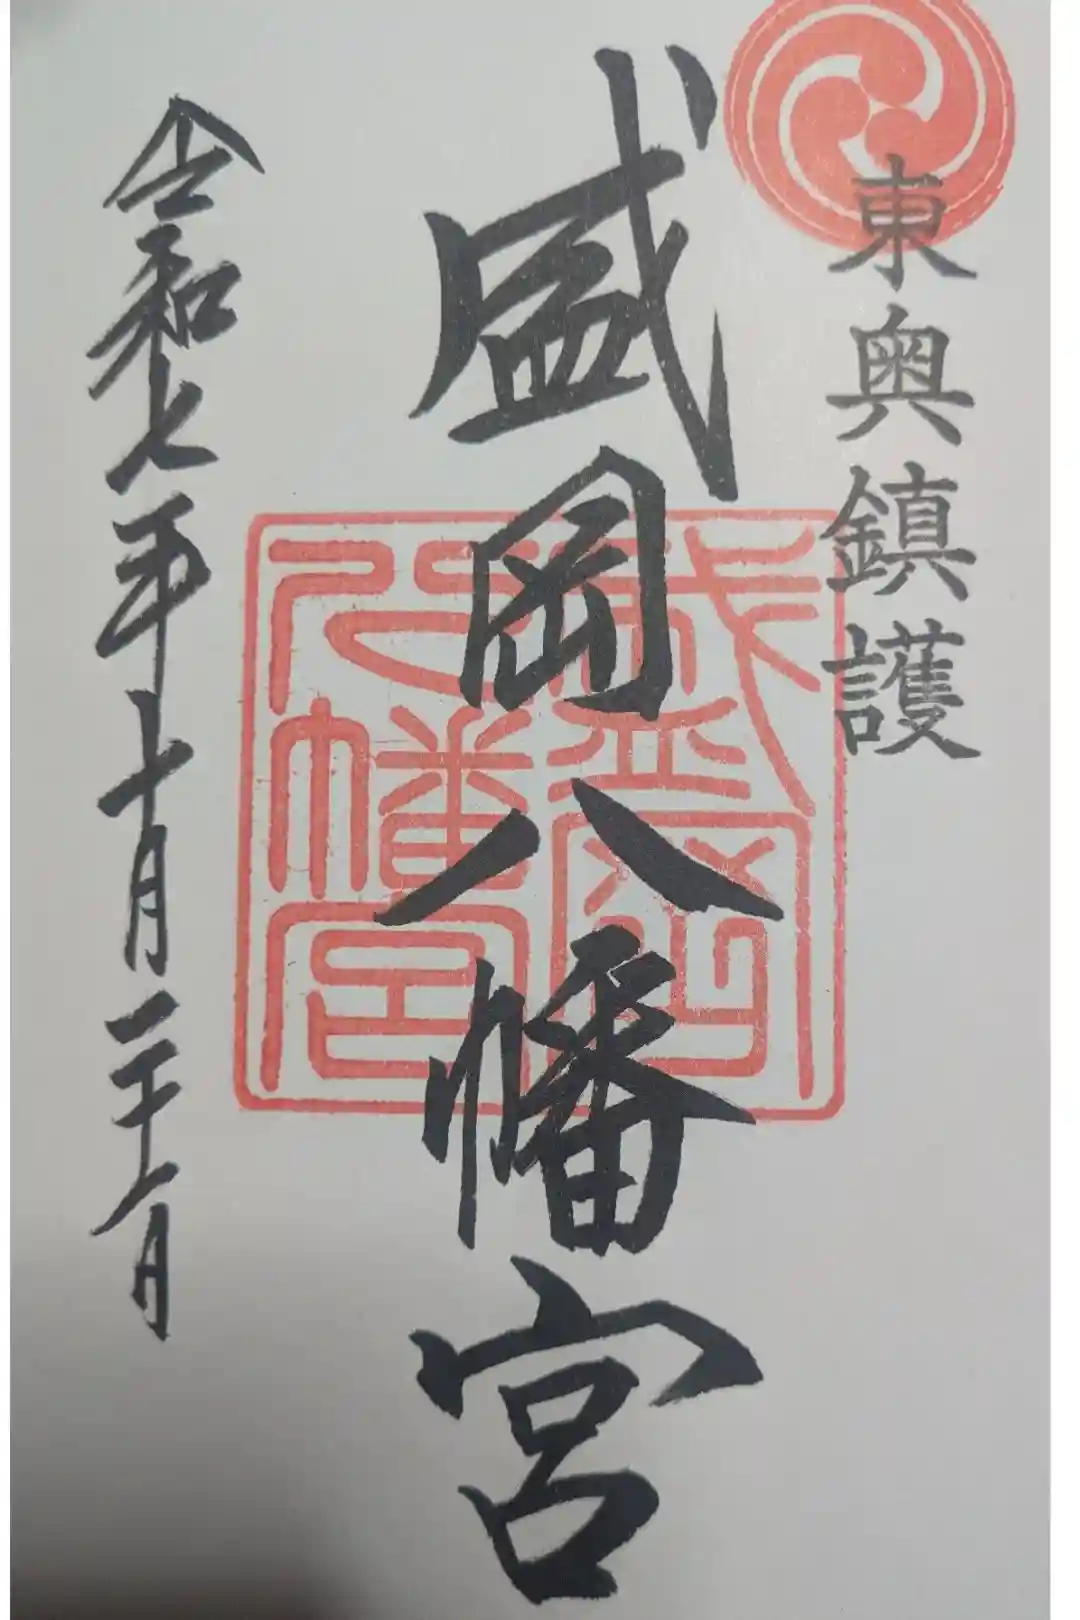 東奥鎮護
盛岡八幡宮
令和七年十月二十一日
盛岡
八幡宮